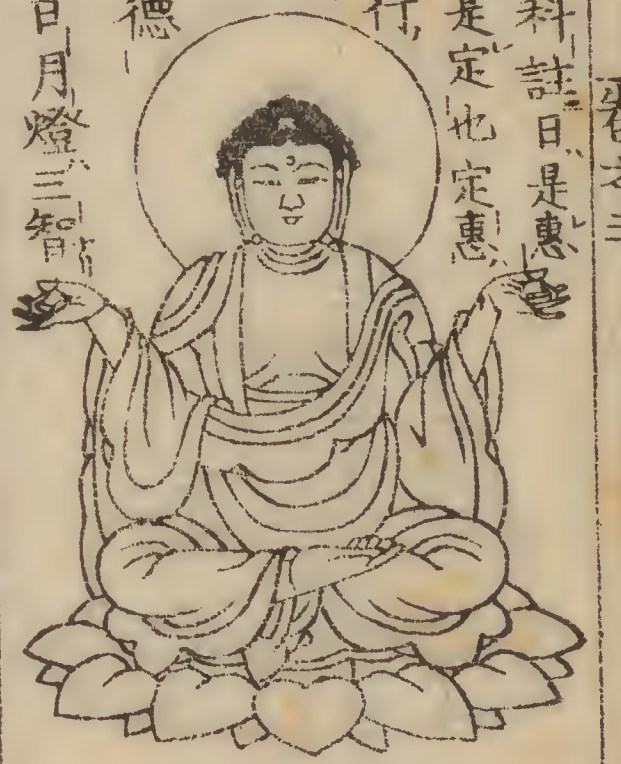 科註曰是惠
是定也定惠
行
德
日月燈三智